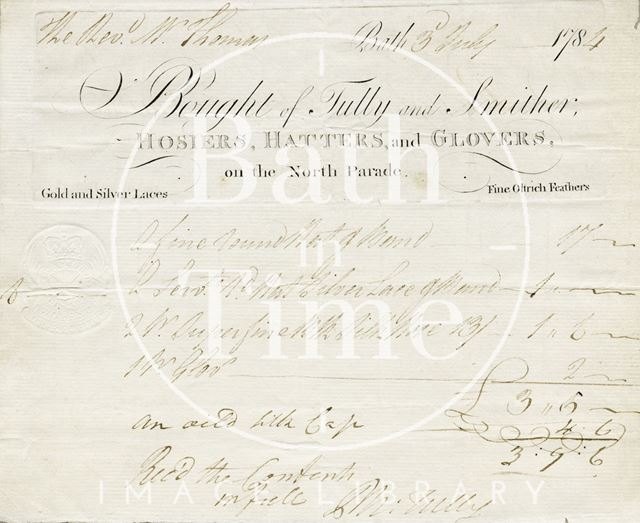 The Revd. Mr. Thomas Bath 3d July 1784
Bought of Tully and Smither,
HOSIERS, HATTERS, and GLOVERS,
on the North Parade.
Gold and Silver Laces Fine Ostrich Feathers
Bath
in
Time
A fine round Hat & Band 17/
2 Servts. Do. Hats Silver Lace & Band 1
2 Pr. Superfine Silk Hose 13/ 1 " 6
1 Pr. Glov 2
£ 3 " 5
an oild silk Cap 4 : 6
3 : 9 : 6
Recd the Contents
in full Tully
IMAGE LIBRARY